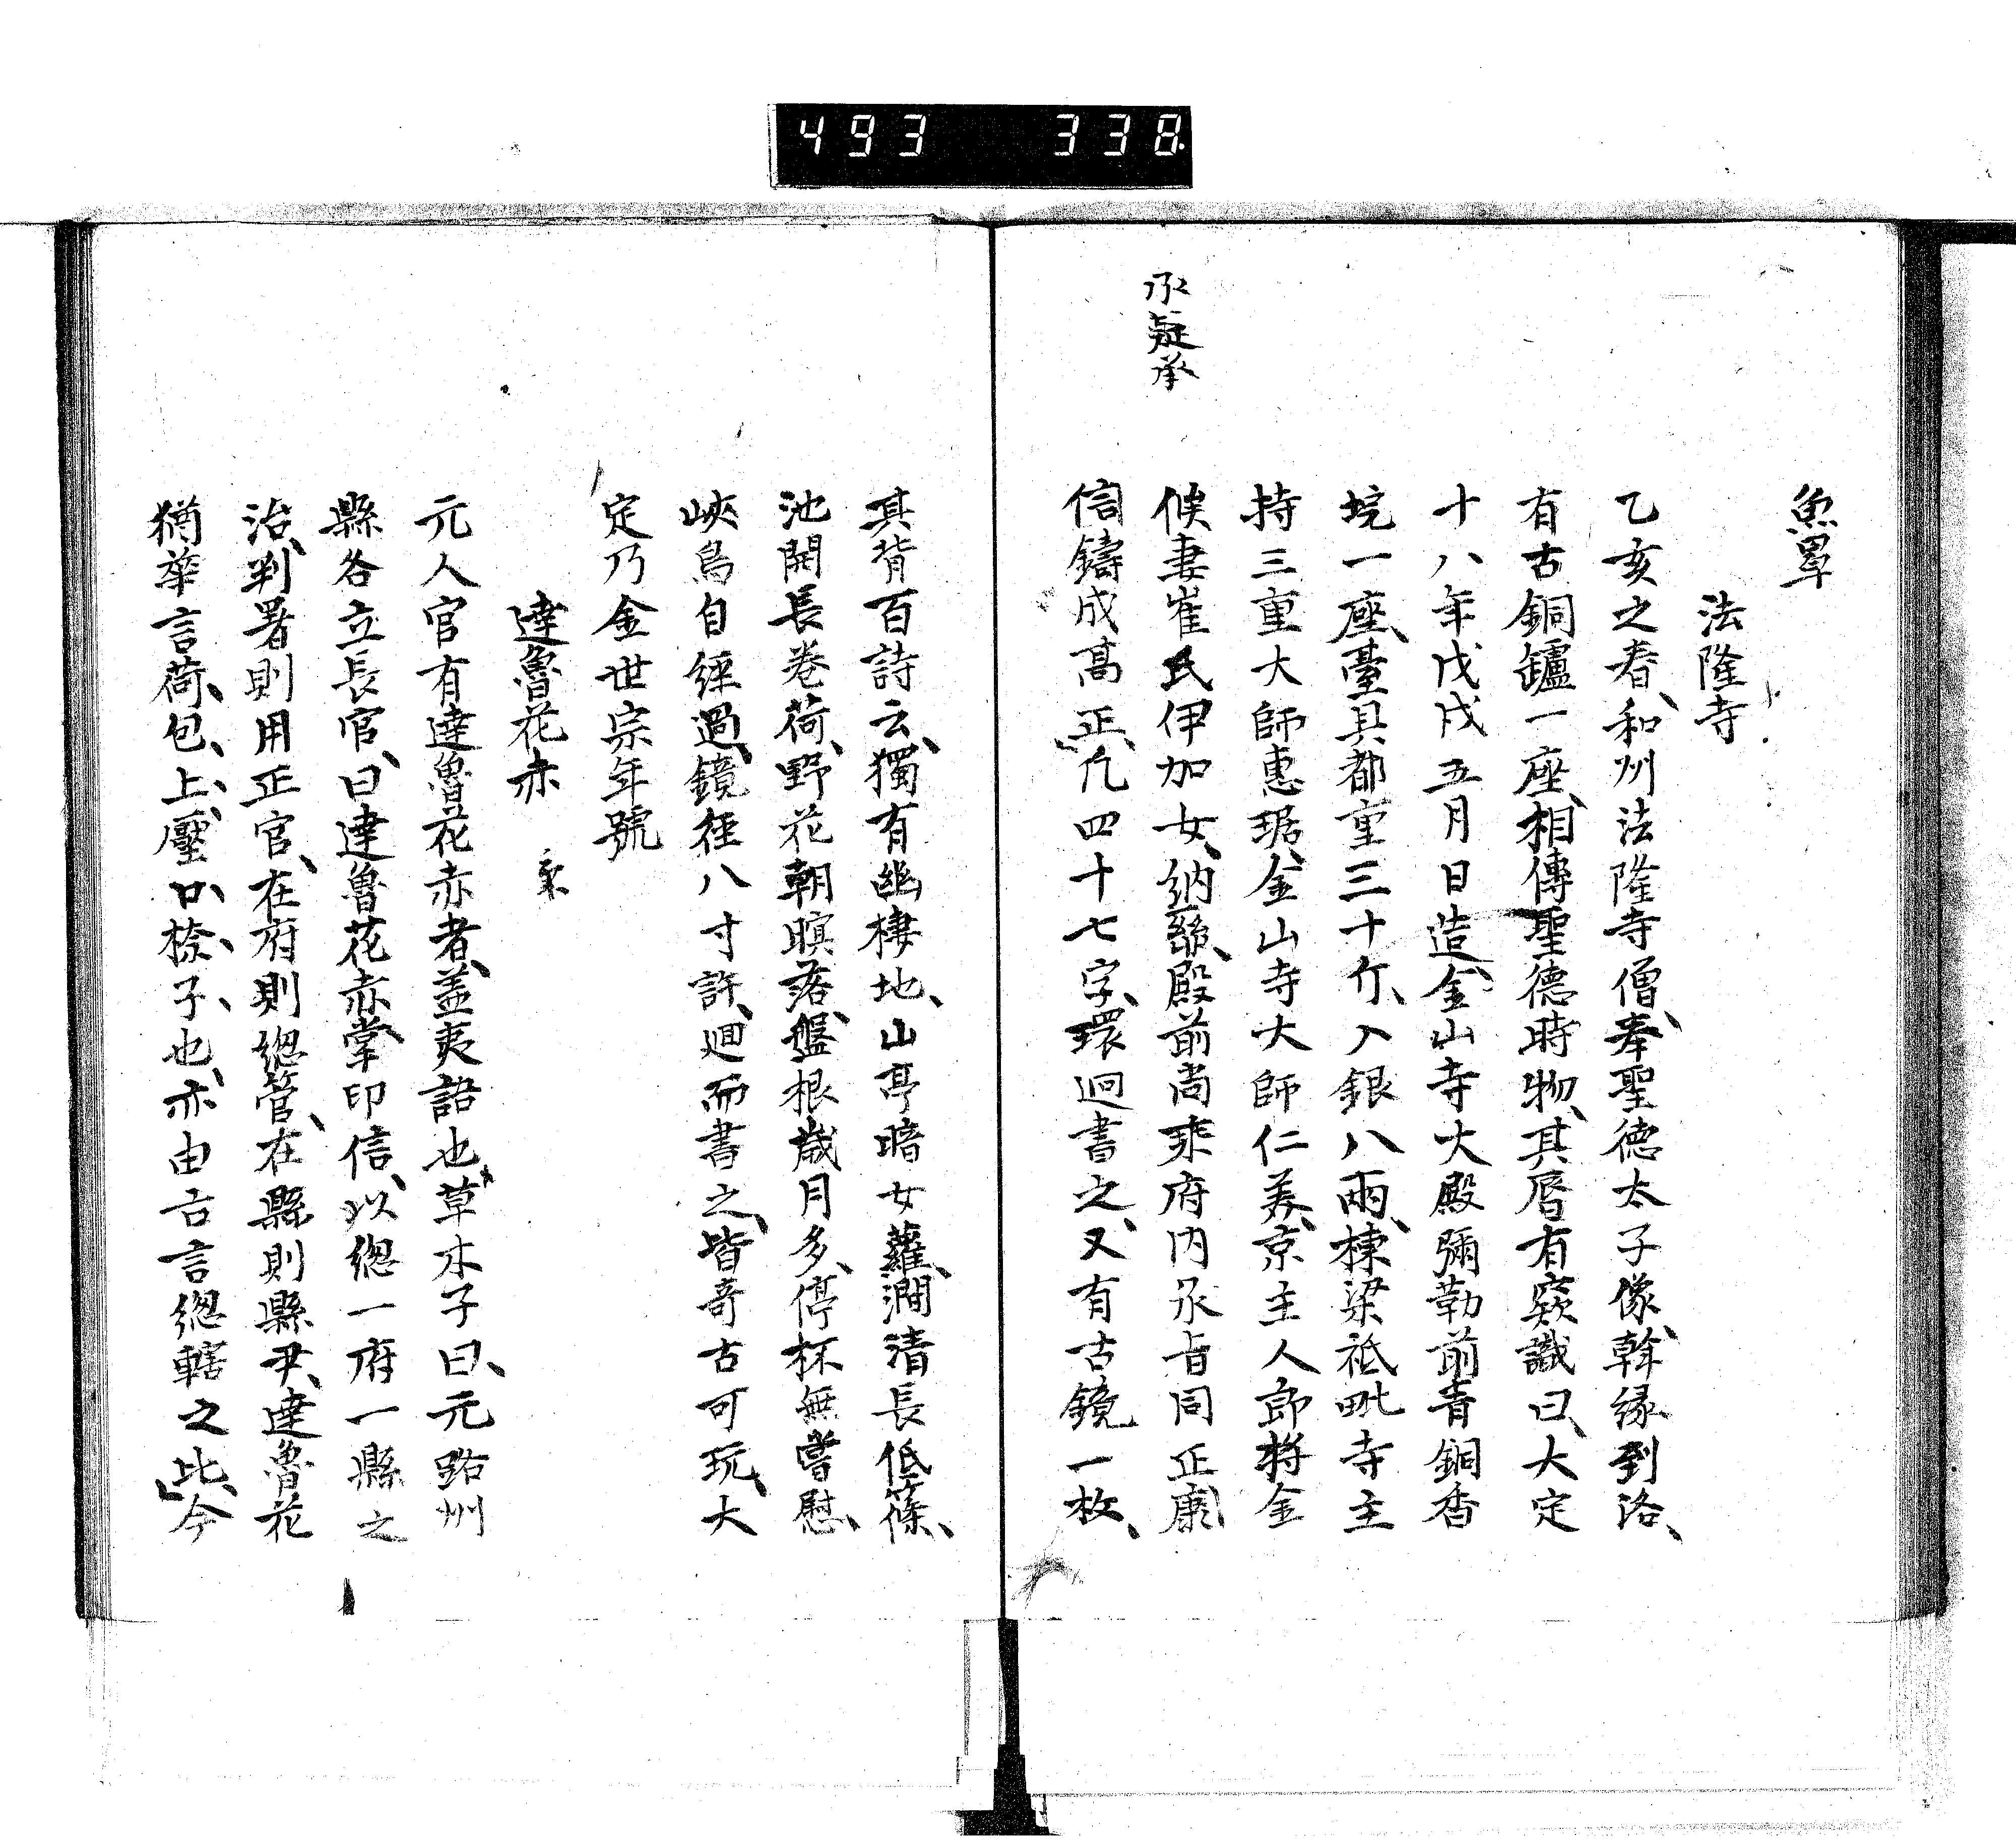 493 338
魚罩
法隆寺
乙亥之春、和州法隆寺僧、奉聖德太子像、幹縁到洛、
有古銅鑪一座、相傳聖德時物、其唇有窾識曰、大定
十八年戊戌五月日造、金山寺大殿彌勒前青銅香
垸一座、臺具都重三十斤、入銀八兩、棟梁祗毗寺主
持三重大師惠琚、金山寺大師仁美、京主人郎将金
候妻崔氏伊加女、納絲、殿前尚乘府内承旨同正康
信鑄成高正、凡四十七字、環迴書之、又有古鏡一枚、
承疑承
其背百詩云、獨有幽棲地、山亭暗女蘿、澗清長低篠、
池開長卷荷、野花朝暝落、盤根歳月多、停杯無嘗慰、
峽鳥自經過、鏡徑八寸許、廻而書之、皆竒古可玩、大
定乃金世宗年號
達魯花赤
元人官有達魯花赤者、盖夷語也、草木子曰、元路州
縣各立長官、曰達魯花赤、掌印信、以總一府一縣之
治、判署則用正官、在府則總管、在縣則縣尹、達魯花
猶華言荷包上壓口捺子也、亦由古言總轄之比、今